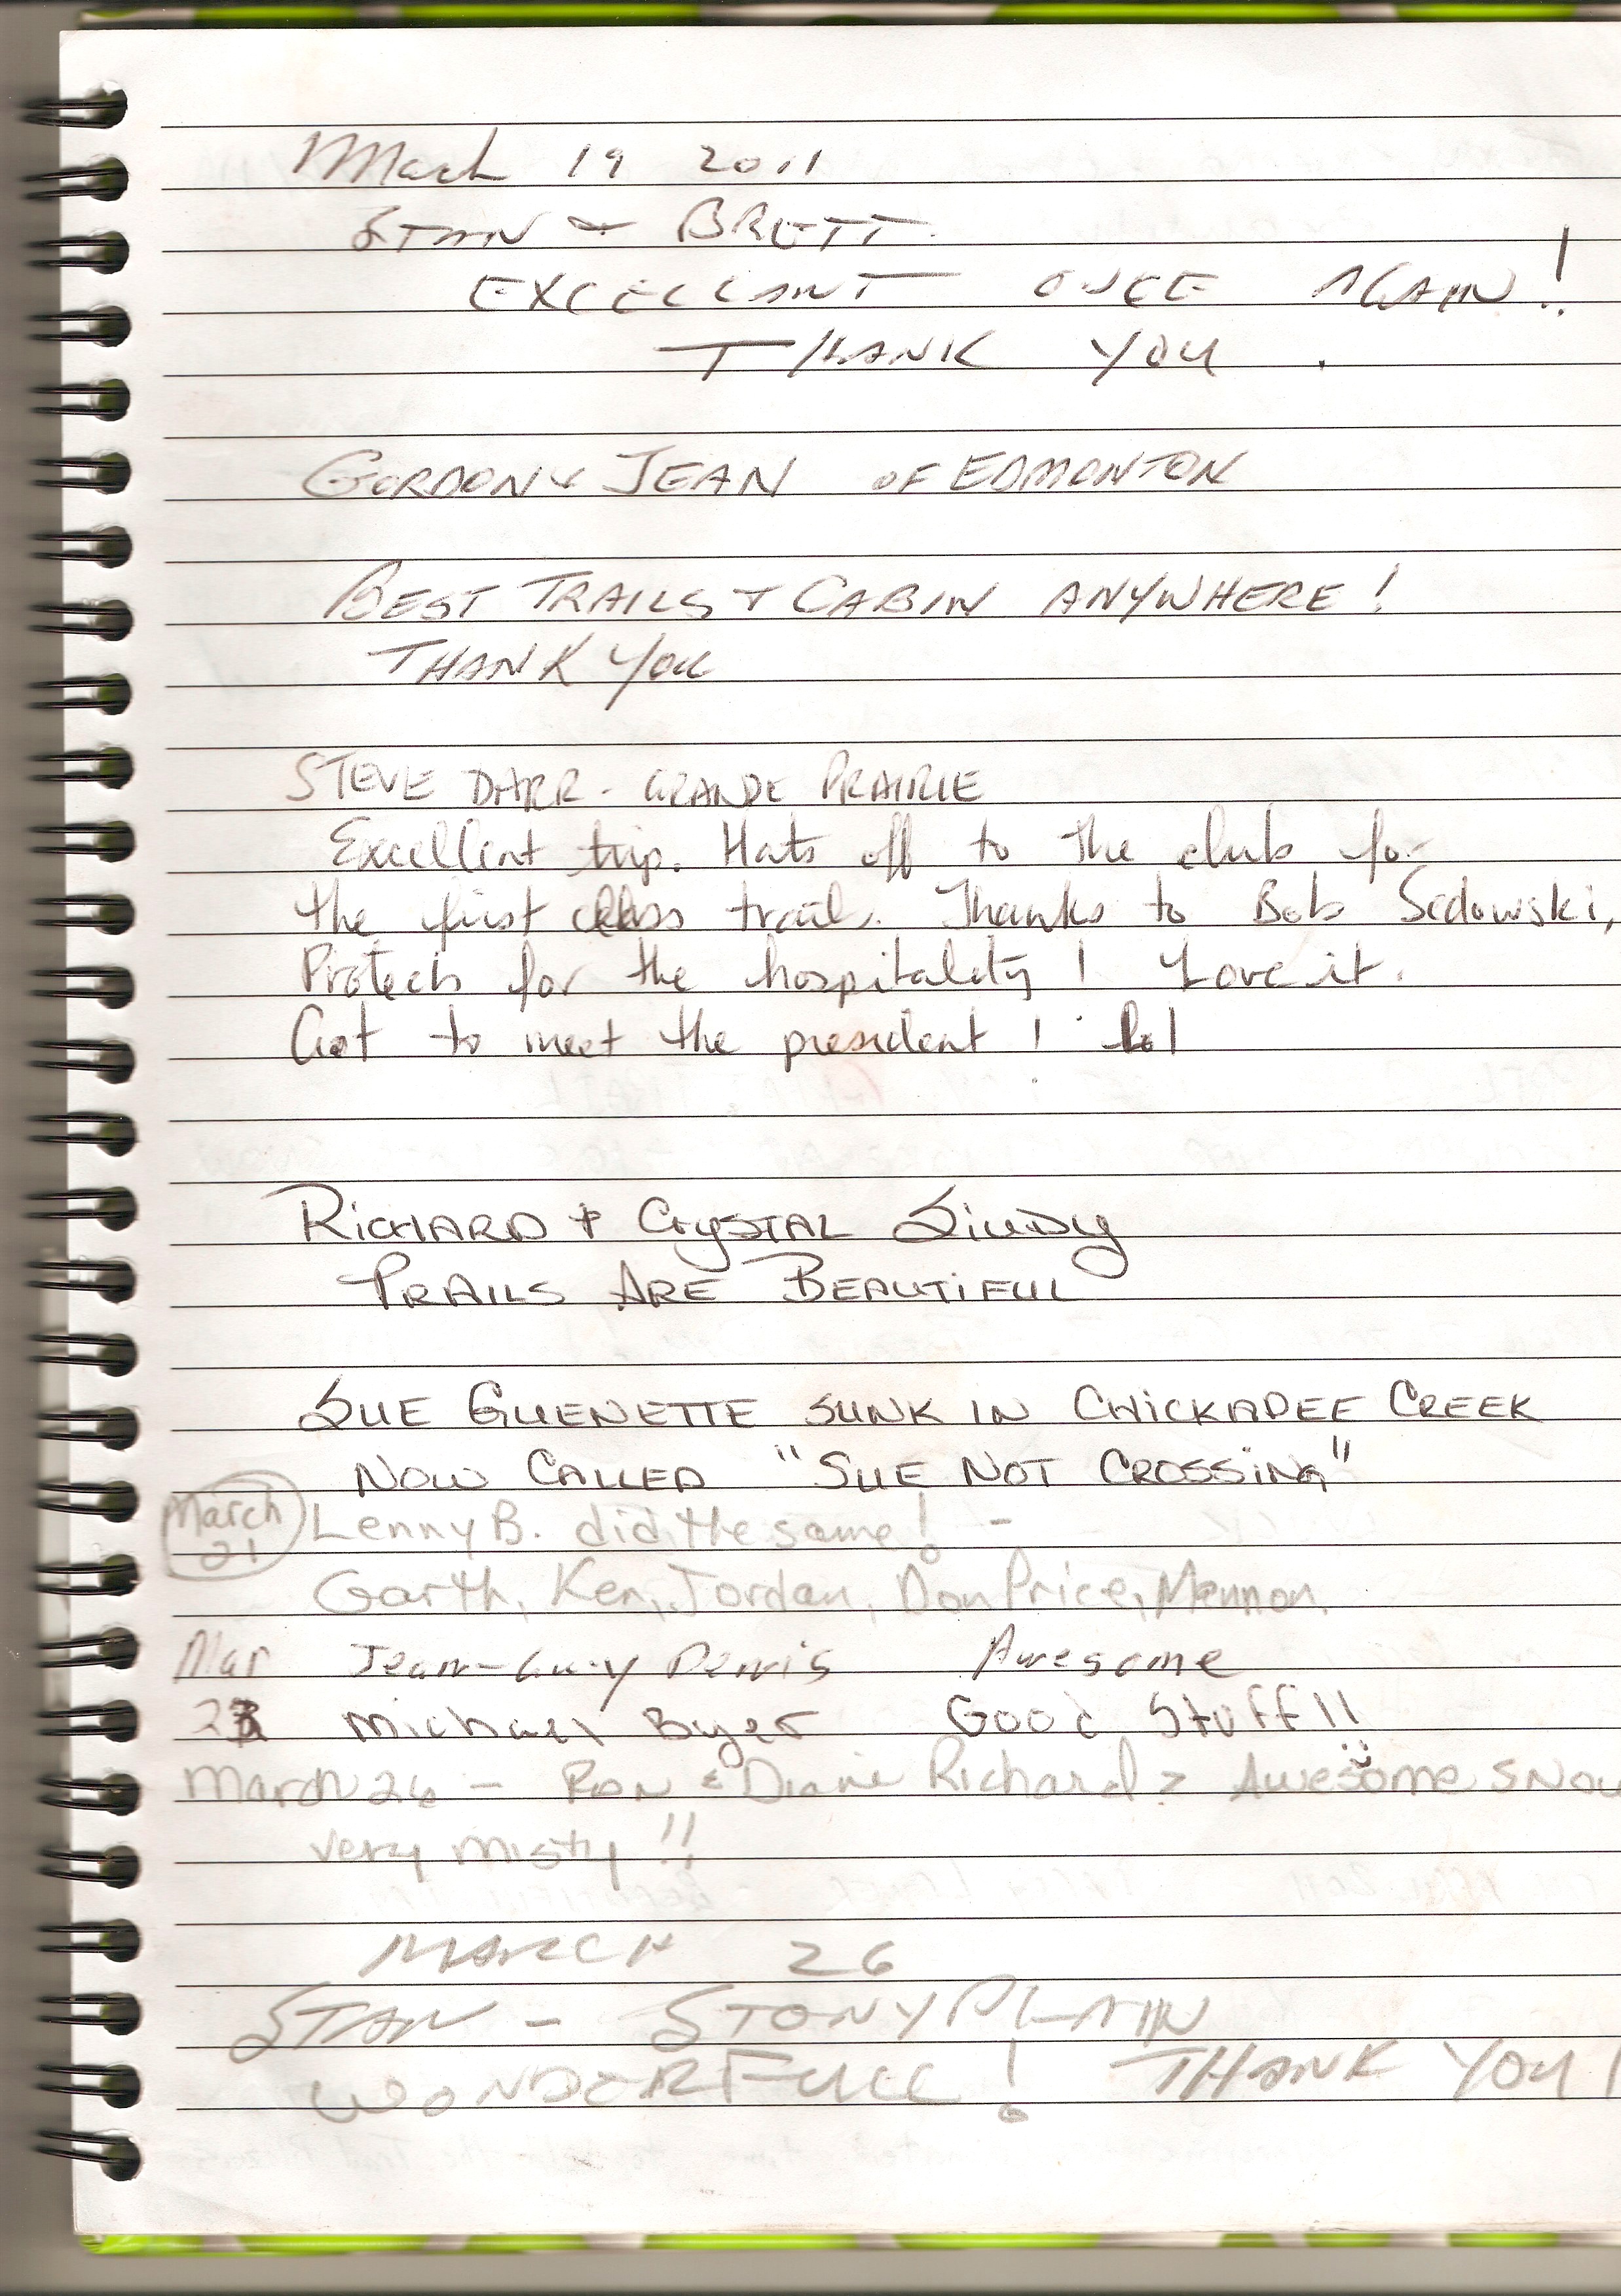 March 19 2011
STAN & BRETT.
EXCELLANT ONCE AGAIN!!
THANK YOU.
GORDON & JEAN OF EDMONTON
BEST TRAILS + CABIN ANYWHERE!
THANK YOU
STEVE DARR - GRANDE PRAIRIE
Excellent trip. Hats off to the club for
the first class trails. Thanks to Bob Sedowski,
Protech for the hospitality! Love it.
Got to meet the president! Lol
RICHARD + CRYSTAL SIUDY
TRAILS ARE BEAUTIFUL
SUE GUENETTE SUNK IN CHICKADEE CREEK
NOW CALLED "SUE NOT CROSSING"
March 21 Lenny B. did the same! -
Garth, Ken, Jordan, Don Price, Mennon.
Mar Jean-Guy Denis Awesome
23 Michael Byer Good Stuff!!
March 26 - Ron & Diane Richard > Awesome snow
very misty!!
MARCH 26
STAN - STONY PLAIN
WONDERFULL! THANK YOU!